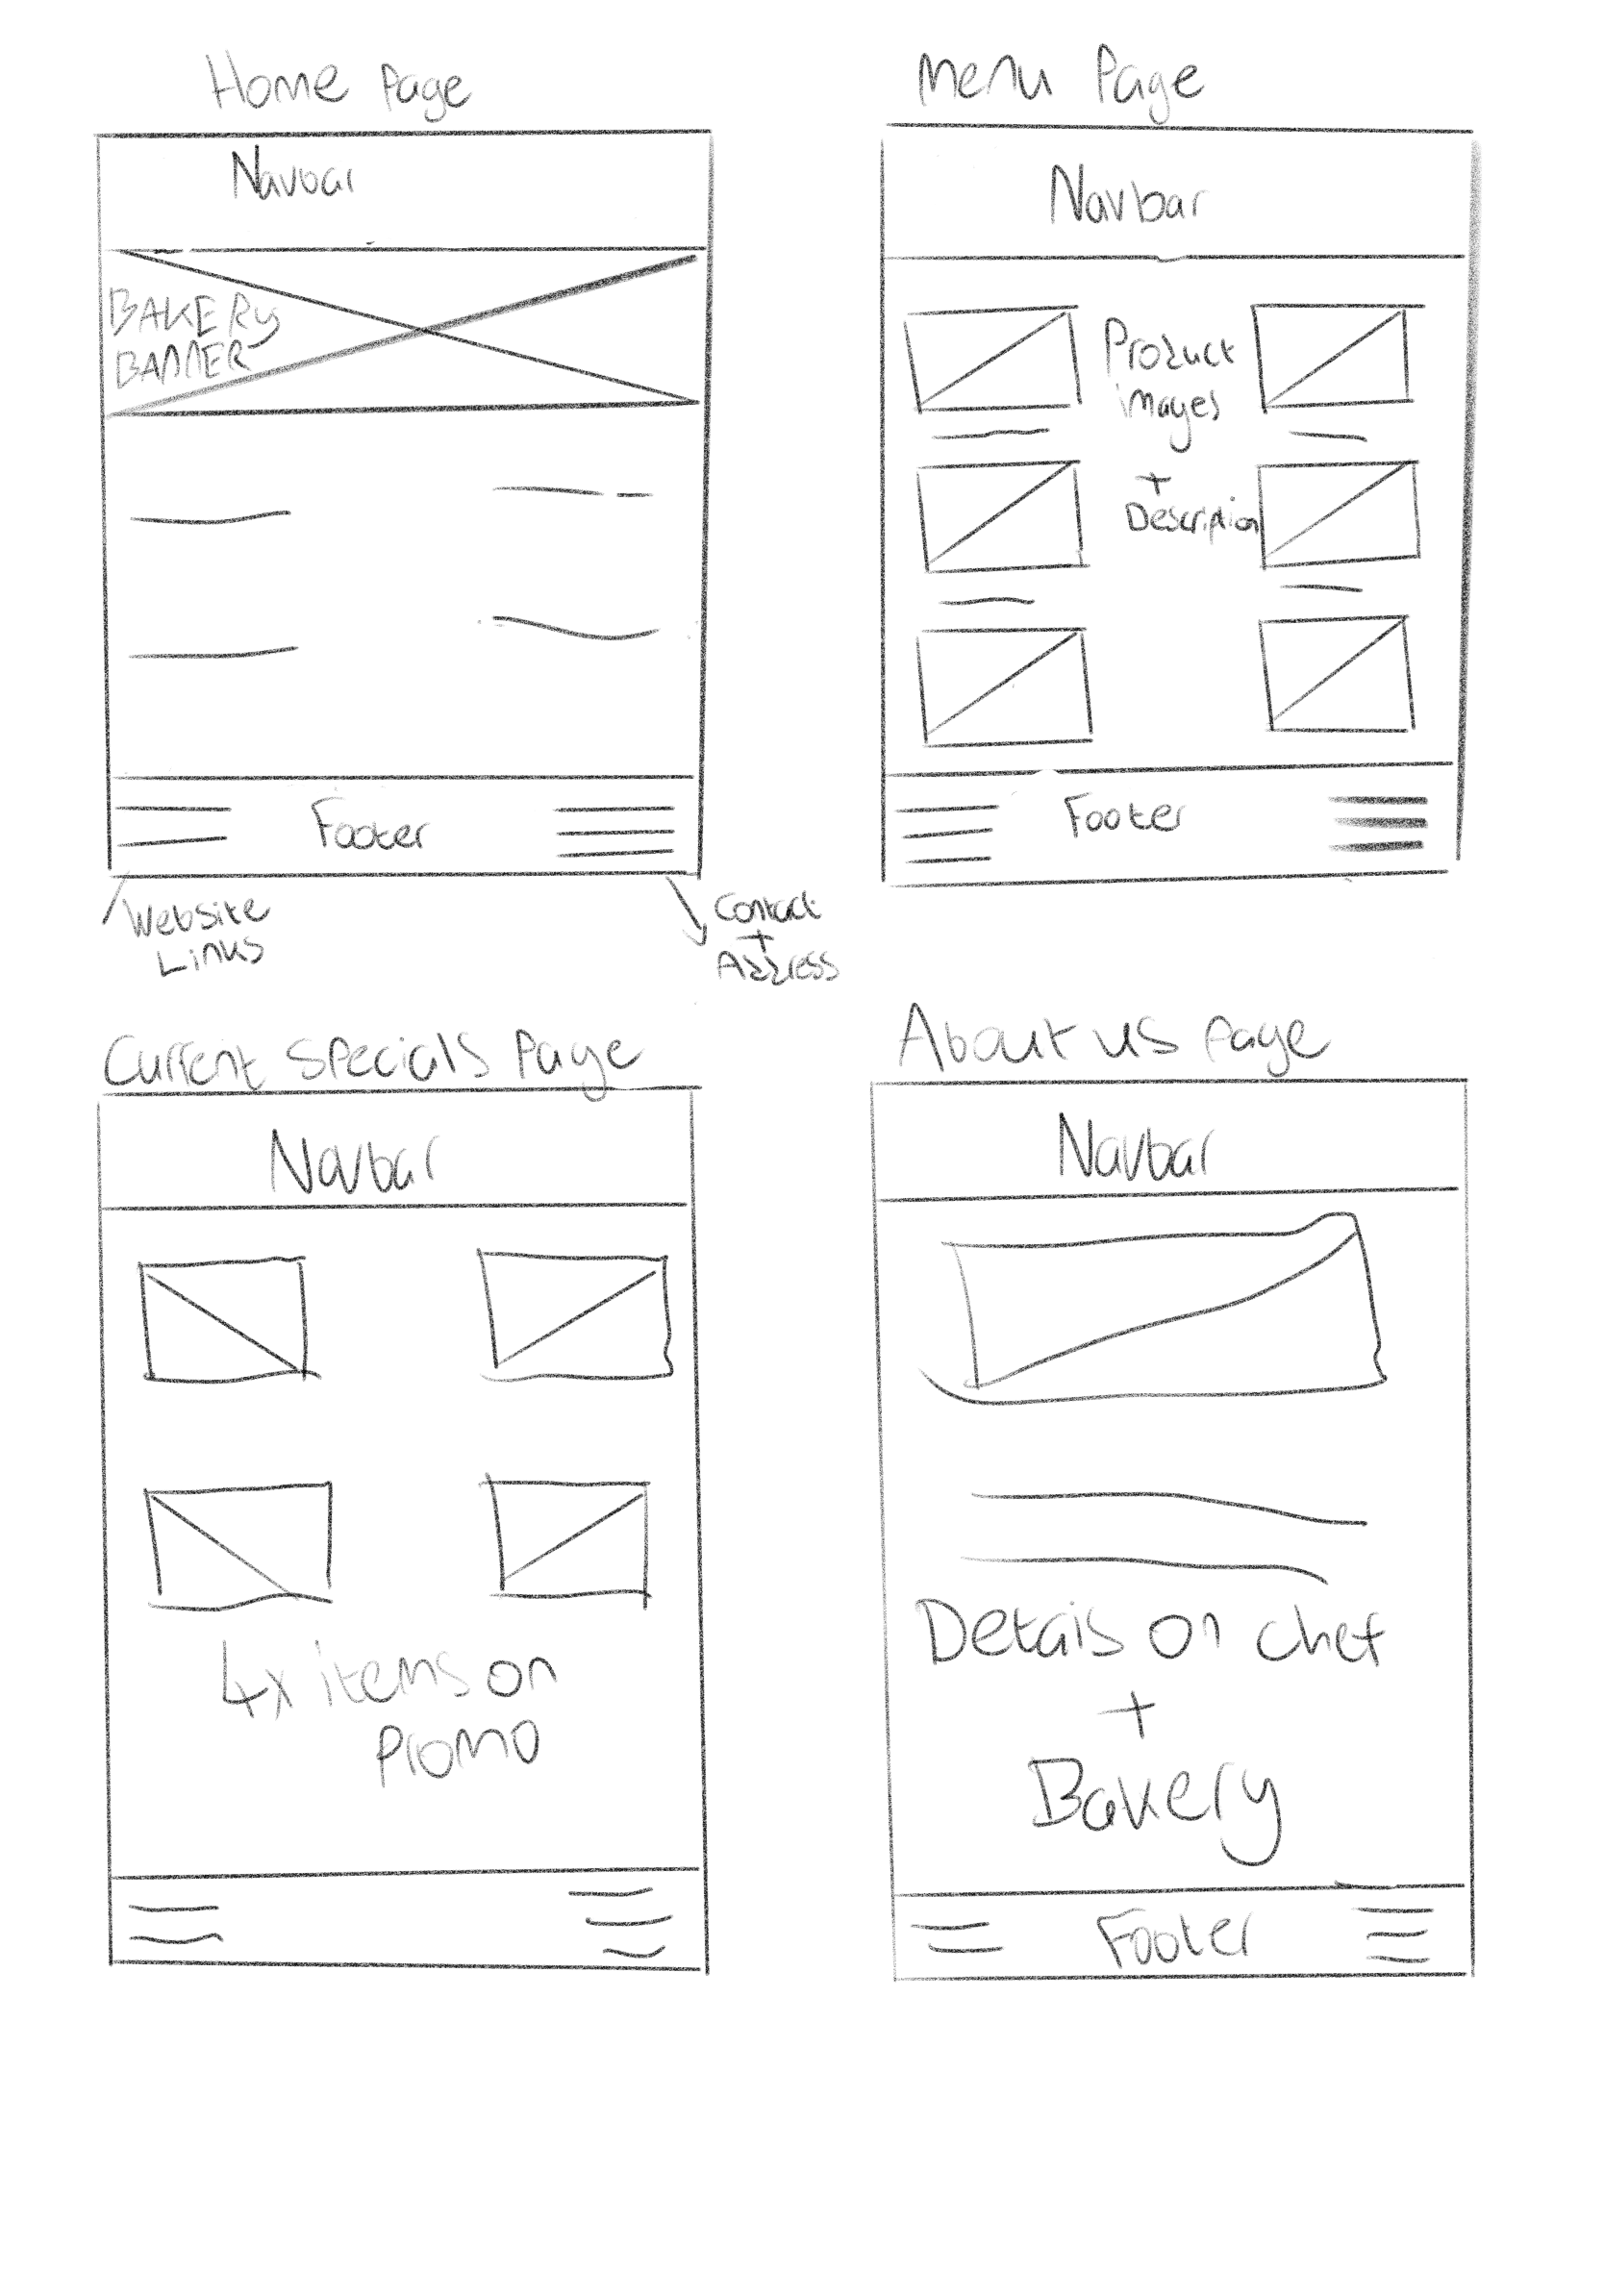 Home Page
Navbar
BAKERY
BANNER
Footer
Website
Links
Contact
+
Address
Menu Page
Navbar
Product
images
+
Description
Footer
Current Specials Page
Navbar
4x items on
Promo
About us page
Navbar
Detais on chef
+
Bakery
Footer